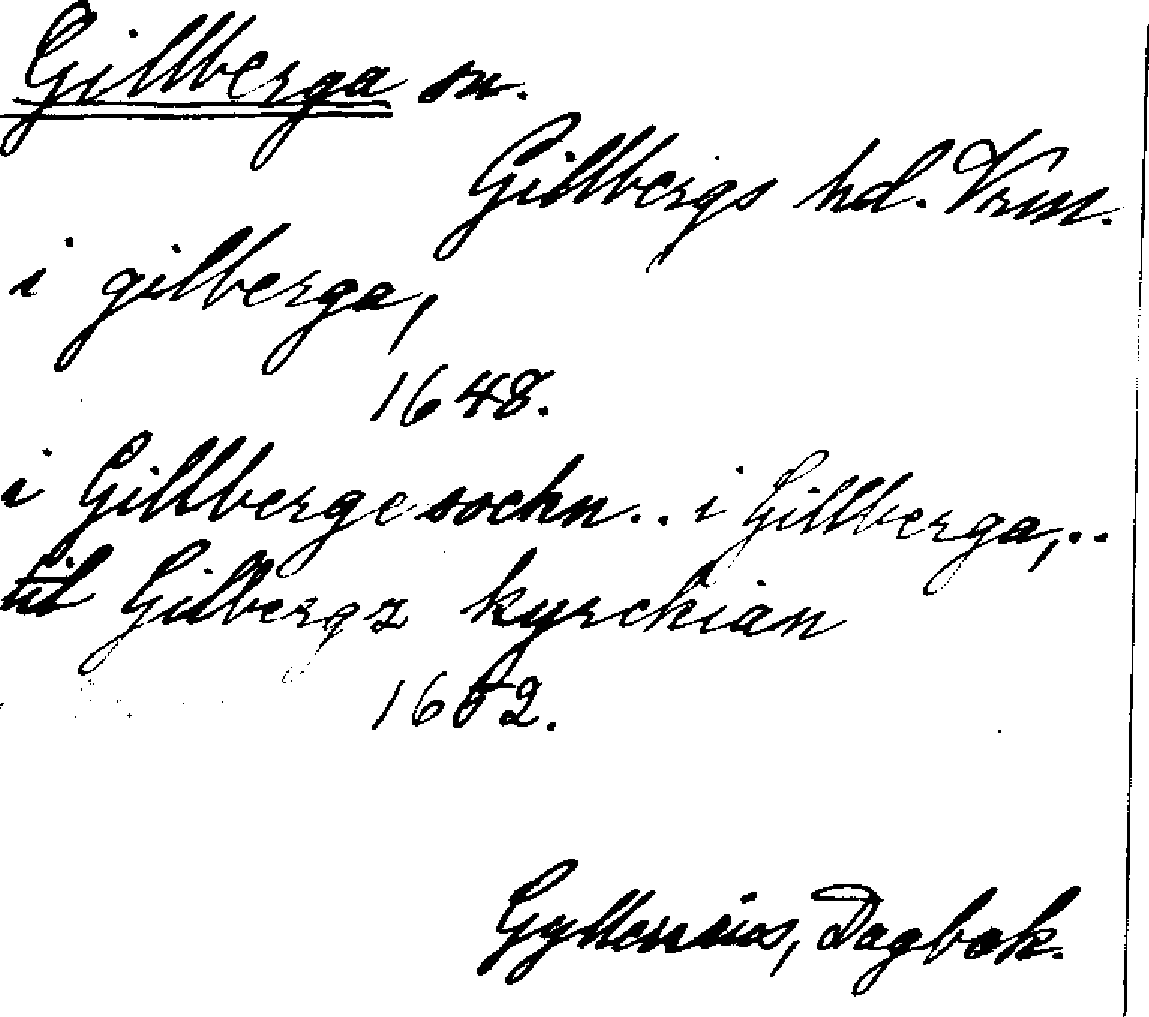 Gillberga sn.
Gillbergs hd. Vrm.
i gilberga,
1648.
i Gillberge sochn.. i Gillberga,..
til Gilbergz kyrchian
1652.
Gyllenius, Dagbok.